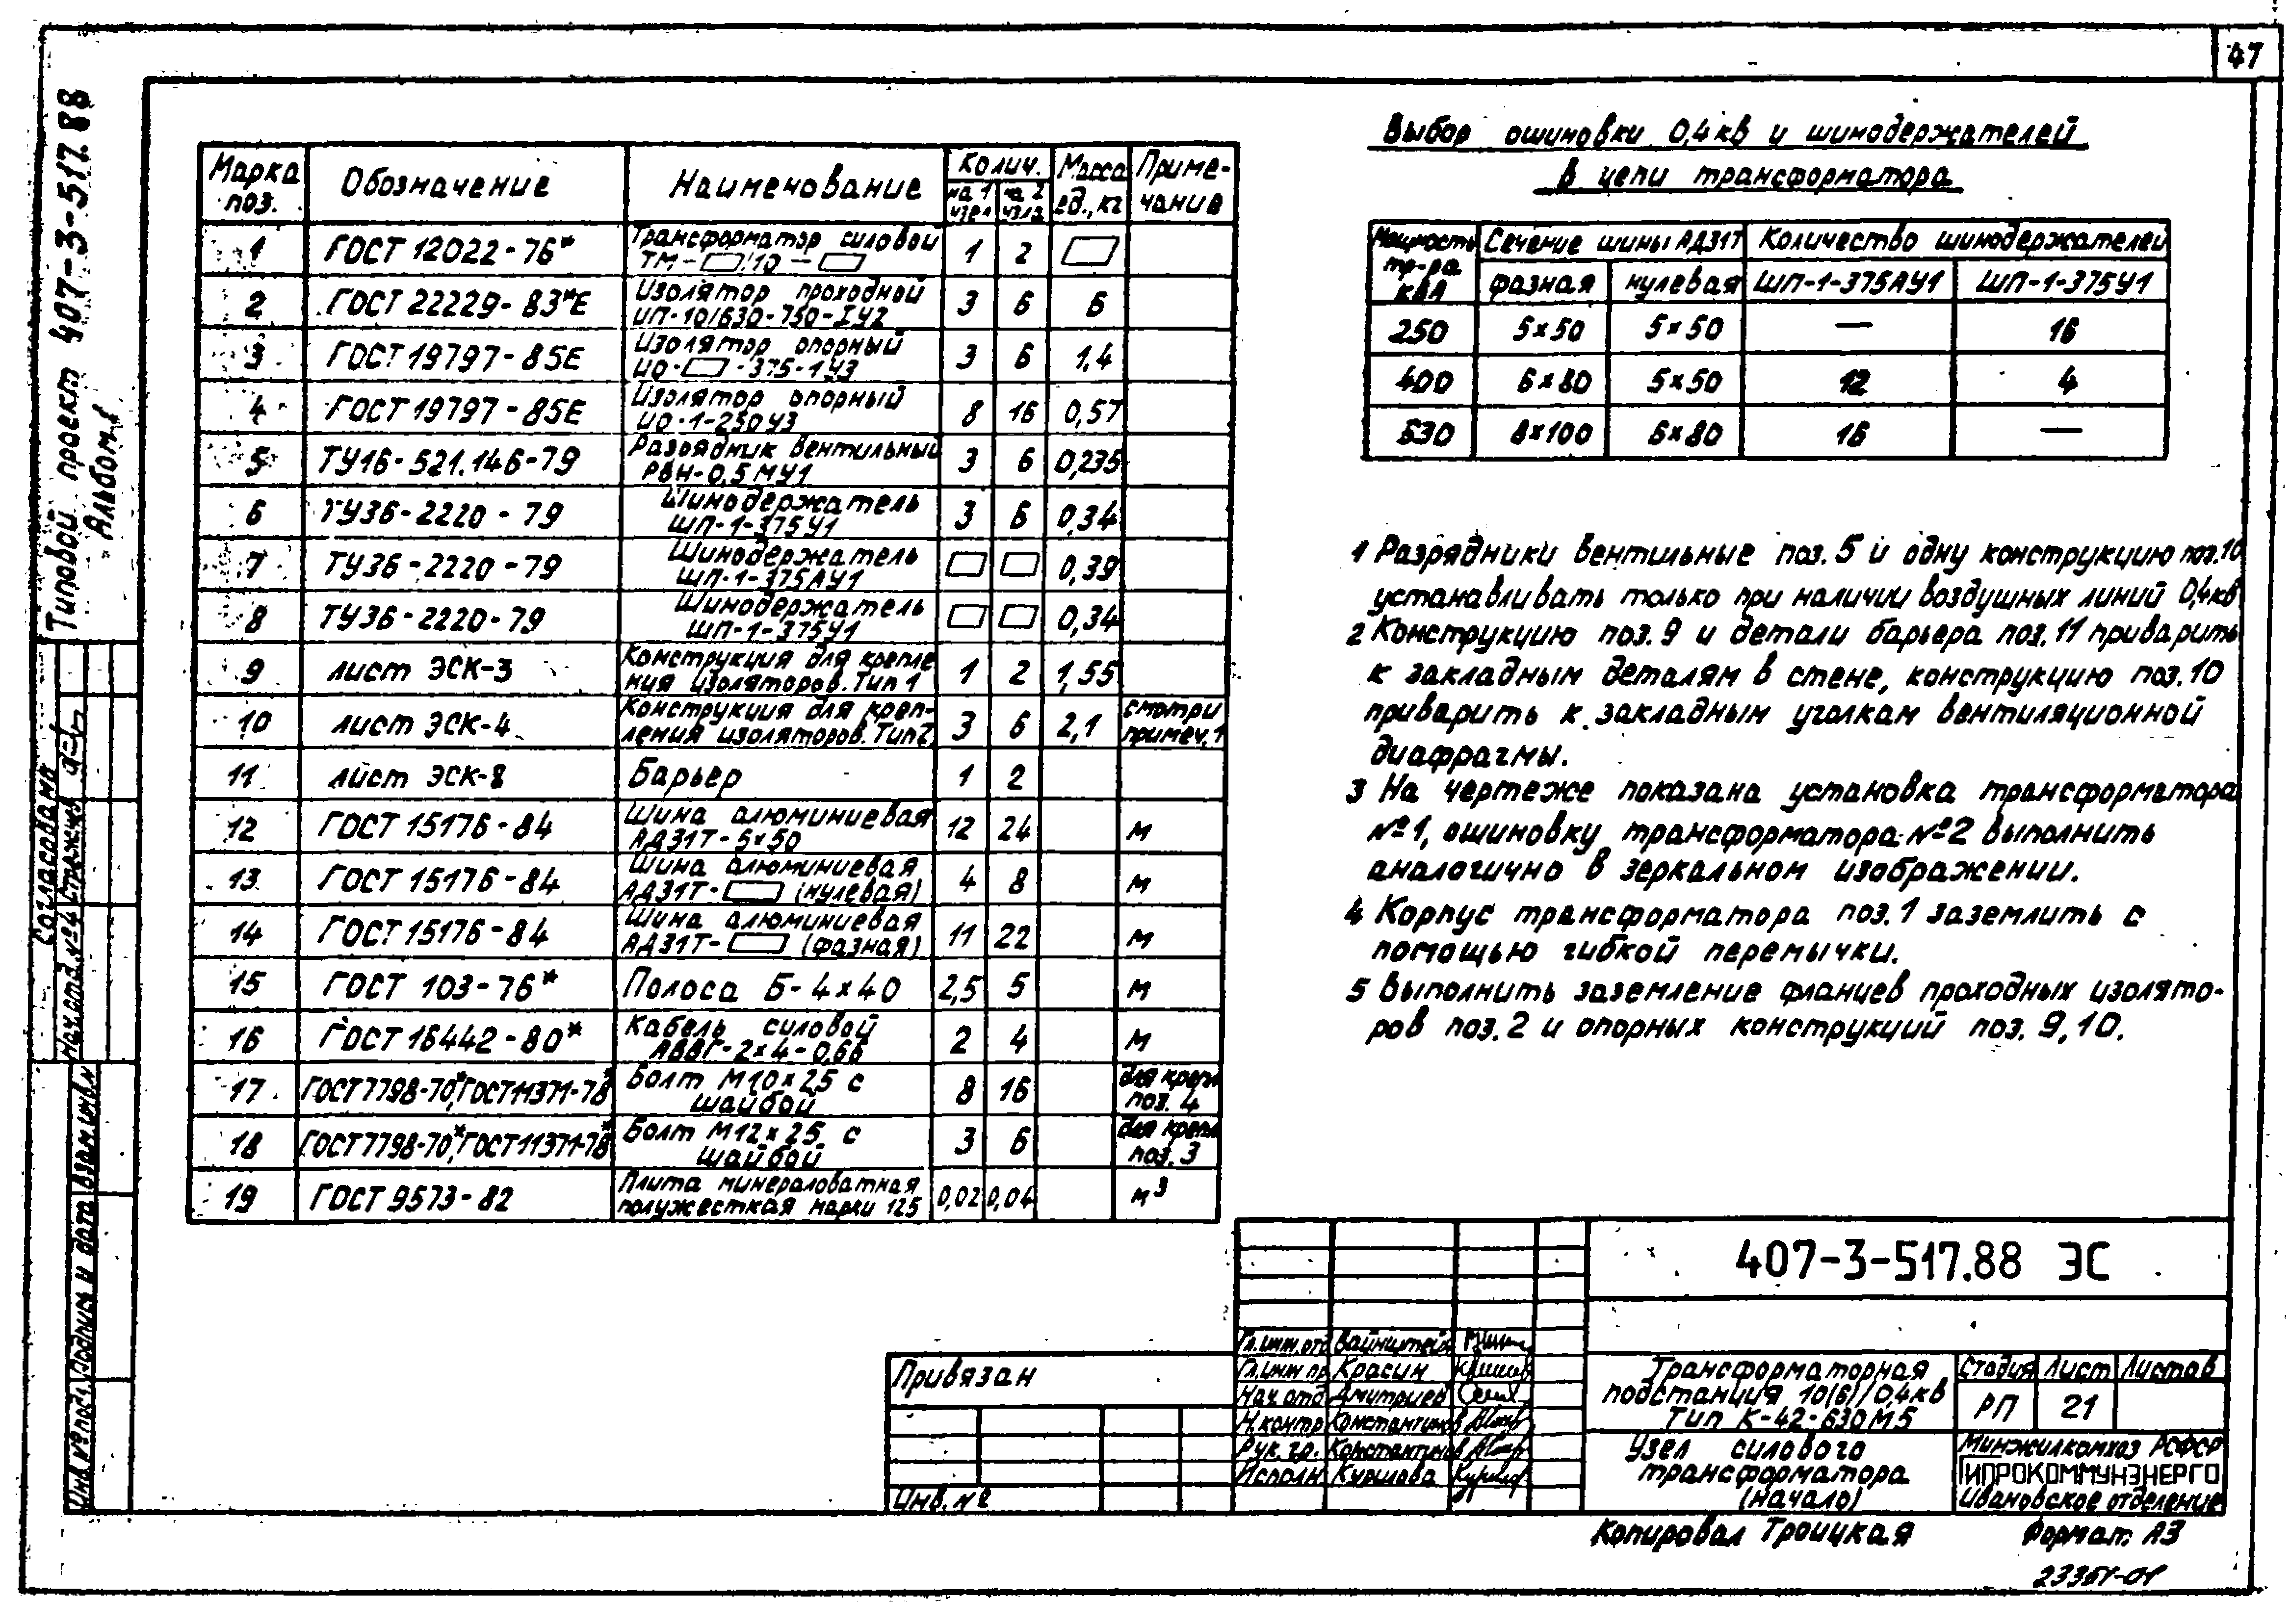 47
Типовой проект 407-3-517.88
Альбом 1
Марка поз. Обозначение Наименование Колич. на 1 узел на 2 узла Масса ед., кг Примечание
1 ГОСТ 12022-76* Трансформатор силовой ТМ-▭/10-▭ 1 2 ▭
2 ГОСТ 22229-83*Е Изолятор проходной ИП-10/630-750-IУ2 3 6 6
3 ГОСТ 19797-85Е Изолятор опорный ИО-▭-375-1У3 3 6 1,4
4 ГОСТ 19797-85Е Изолятор опорный ИО-1-250У3 8 16 0,57
5 ТУ16-521.146-79 Разрядник вентильный РВН-0,5МУ1 3 6 0,235
6 ТУ36-2220-79 Шинодержатель ШП-1-375У1 3 6 0,34
7 ТУ36-2220-79 Шинодержатель ШП-1-375АУ1 ▭ ▭ 0,39
8 ТУ36-2220-79 Шинодержатель ШП-1-375У1 ▭ ▭ 0,34
9 лист ЭСК-3 Конструкция для крепления изоляторов. Тип 1 1 2 1,55
10 лист ЭСК-4 Конструкция для крепления изоляторов. Тип 2 3 6 2,1 смотри примеч. 1
11 лист ЭСК-8 Барьер 1 2
12 ГОСТ 15176-84 Шина алюминиевая АД31Т-5×50 12 24 м
13 ГОСТ 15176-84 Шина алюминиевая АД31Т-▭ (нулевая) 4 8 м
14 ГОСТ 15176-84 Шина алюминиевая АД31Т-▭ (фазная) 11 22 м
15 ГОСТ 103-76* Полоса Б-4×40 2,5 5 м
16 ГОСТ 16442-80* Кабель силовой АВВГ-2×4-0,66 2 4 м
17 ГОСТ7798-70*, ГОСТ11371-78* Болт М10×25 с шайбой 8 16 для креп. поз. 4
18 ГОСТ7798-70*, ГОСТ11371-78* Болт М12×25 с шайбой 3 6 для креп. поз. 3
19 ГОСТ 9573-82 Плита минераловатная полужесткая марки 125 0,02 0,04 м³
Выбор ошиновки 0,4кв и шинодержателей
в цепи трансформатора
Мощность тр-ра кВА Сечение шины АД31Т Количество шинодержателей
фазная нулевая ШП-1-375АУ1 ШП-1-375У1
250 5×50 5×50 — 16
400 6×80 5×50 12 4
630 8×100 6×80 16 —
1 Разрядники вентильные поз. 5 и одну конструкцию поз. 10
устанавливать только при наличии воздушных линий 0,4кв
2 Конструкцию поз. 9 и детали барьера поз. 11 приварить
к закладным деталям в стене, конструкцию поз. 10
приварить к закладным уголкам вентиляционной
диафрагмы.
3 На чертеже показана установка трансформатора
№1, ошиновку трансформатора №2 выполнить
аналогично в зеркальном изображении.
4 Корпус трансформатора поз. 1 заземлить с
помощью гибкой перемычки.
5 Выполнить заземление фланцев проходных изолято-
ров поз. 2 и опорных конструкций поз. 9, 10.
Согласовано
Инв. № подл. Подпись и дата Взам. инв. №
Привязан
Инв. №
407-3-517.88 ЭС
Гл. инж. отд Вайнштейн
Гл. инж. пр Красин
Нач. отд Дмитриев
Н. контр Константинов
Рук. гр. Константинов
Исполн Куршова
Трансформаторная
подстанция 10(6)/0,4кв
Тип К-42-630М5
Стадия Лист Листов
РП 21
Узел силового
трансформатора
(начало)
Минжилкомхоз РСФСР
ГИПРОКОММУНЭНЕРГО
Ивановское отделение
Копировал Троицкая Формат А3
23361-01